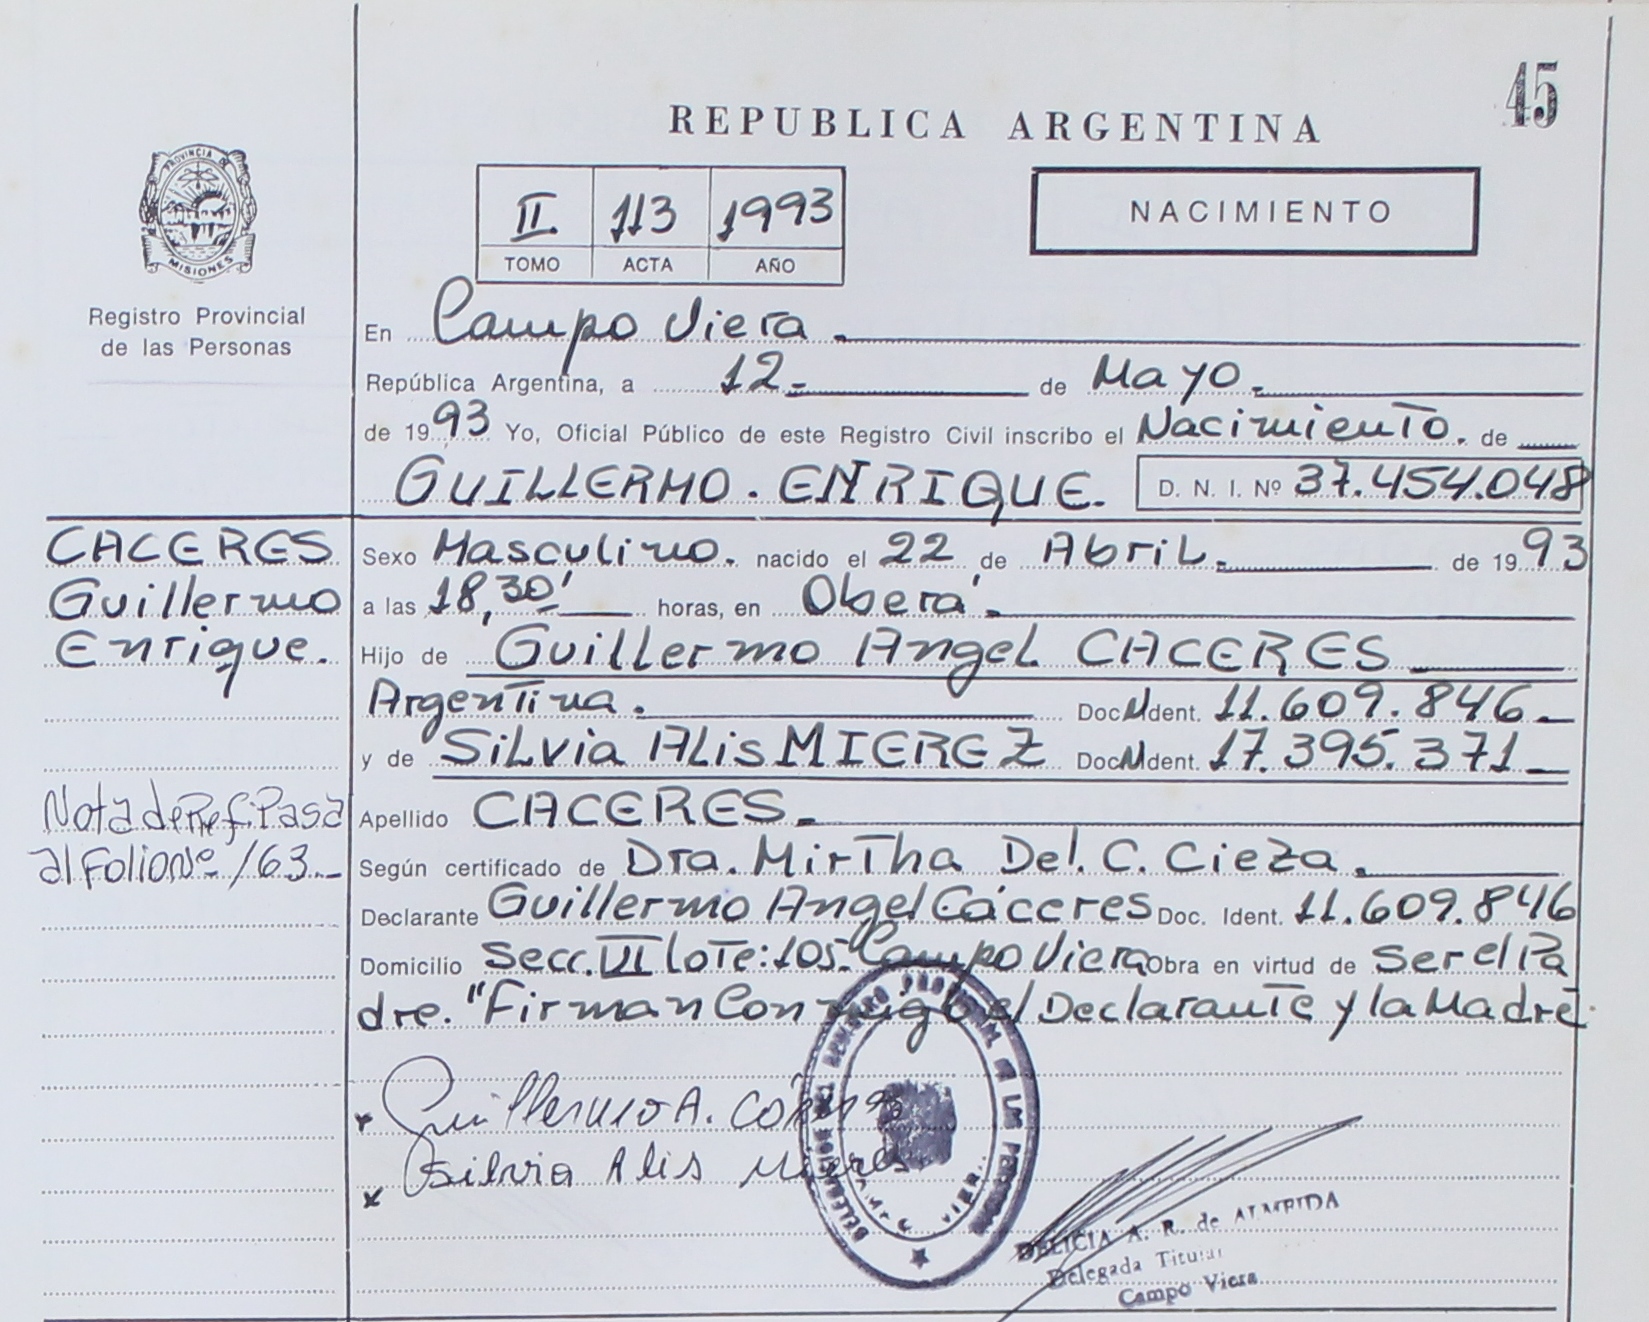 45
REPUBLICA ARGENTINA
PROVINCIA DE
MISIONES
II. 113 1993
TOMO ACTA AÑO
NACIMIENTO
Registro Provincial
de las Personas
En Campo Viera.
República Argentina, a 12- de Mayo.
de 1993 Yo, Oficial Público de este Registro Civil inscribo el Nacimiento. de
GUILLERMO. ENRIQUE. D. N. I. Nº 37.454.048
CACERES
Guillermo
Enrique.
Sexo Masculino. nacido el 22 de Abril. de 1993
a las 18,30' horas, en Oberá.
Hijo de Guillermo Angel CACERES
Argentina. Doc N Ident. 11.609.846
y de Silvia Alis MIEREZ Doc N Ident. 17.395.371
Nota de Ref. Pasa
al Folio Nº 163
Apellido CACERES
Según certificado de Dra. Mirtha Del. C. Cieza.
Declarante Guillermo Angel Cáceres Doc. Ident. 11.609.846
Domicilio Secc. VI lote: 105- Campo Viera Obra en virtud de Ser el Pa
dre. "Firman Conmigo el Declarante y la Madre.
Guillermo A.
Silvia Alis
DELICIA A. R. de ALMEIDA
Delegada Titular
Campo Viera